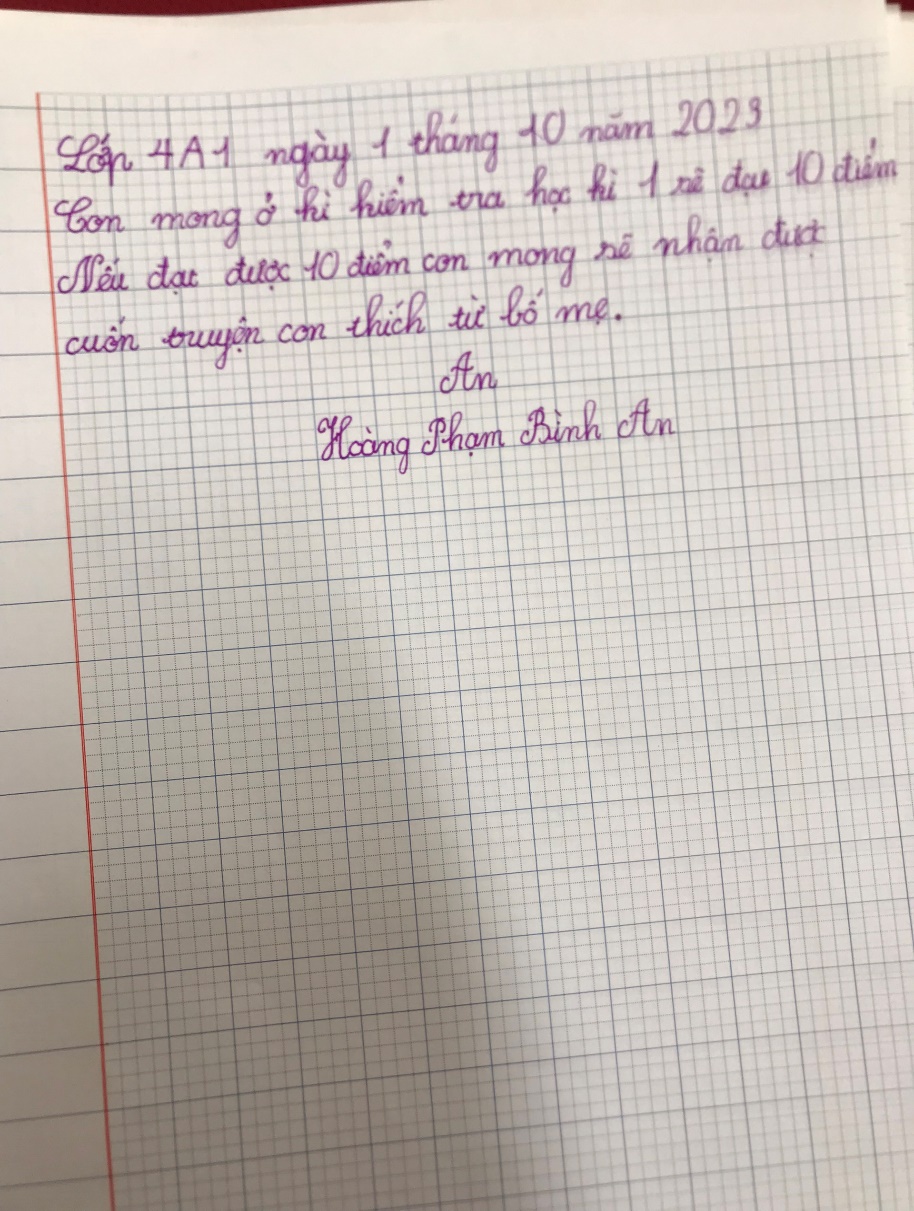 Lớp 4A1 ngày 1 tháng 10 năm 2023
Con mong ở kì kiểm tra học kì 1 sẽ đạt 10 điểm
Nếu đạt được 10 điểm con mong sẽ nhận được
cuốn truyện con thích từ bố mẹ.
An
Hoàng Phạm Bình An